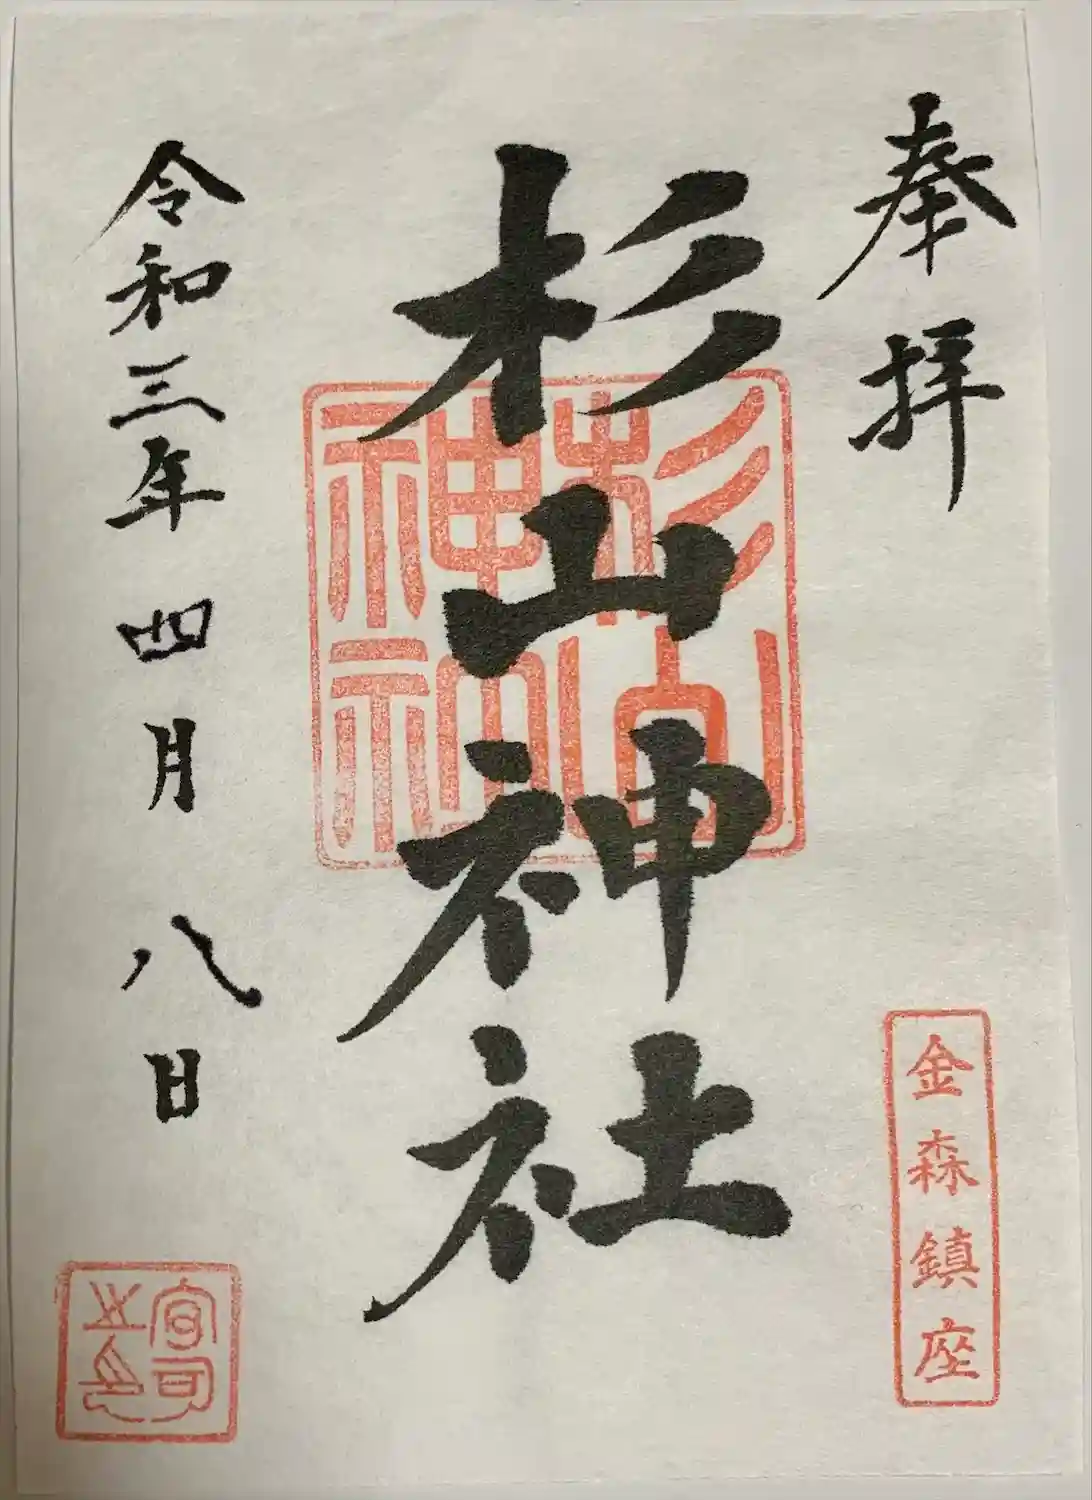 奉拝
金森鎮座
杉山神社
杉山
神社
令和三年四月八日
宮司
之印